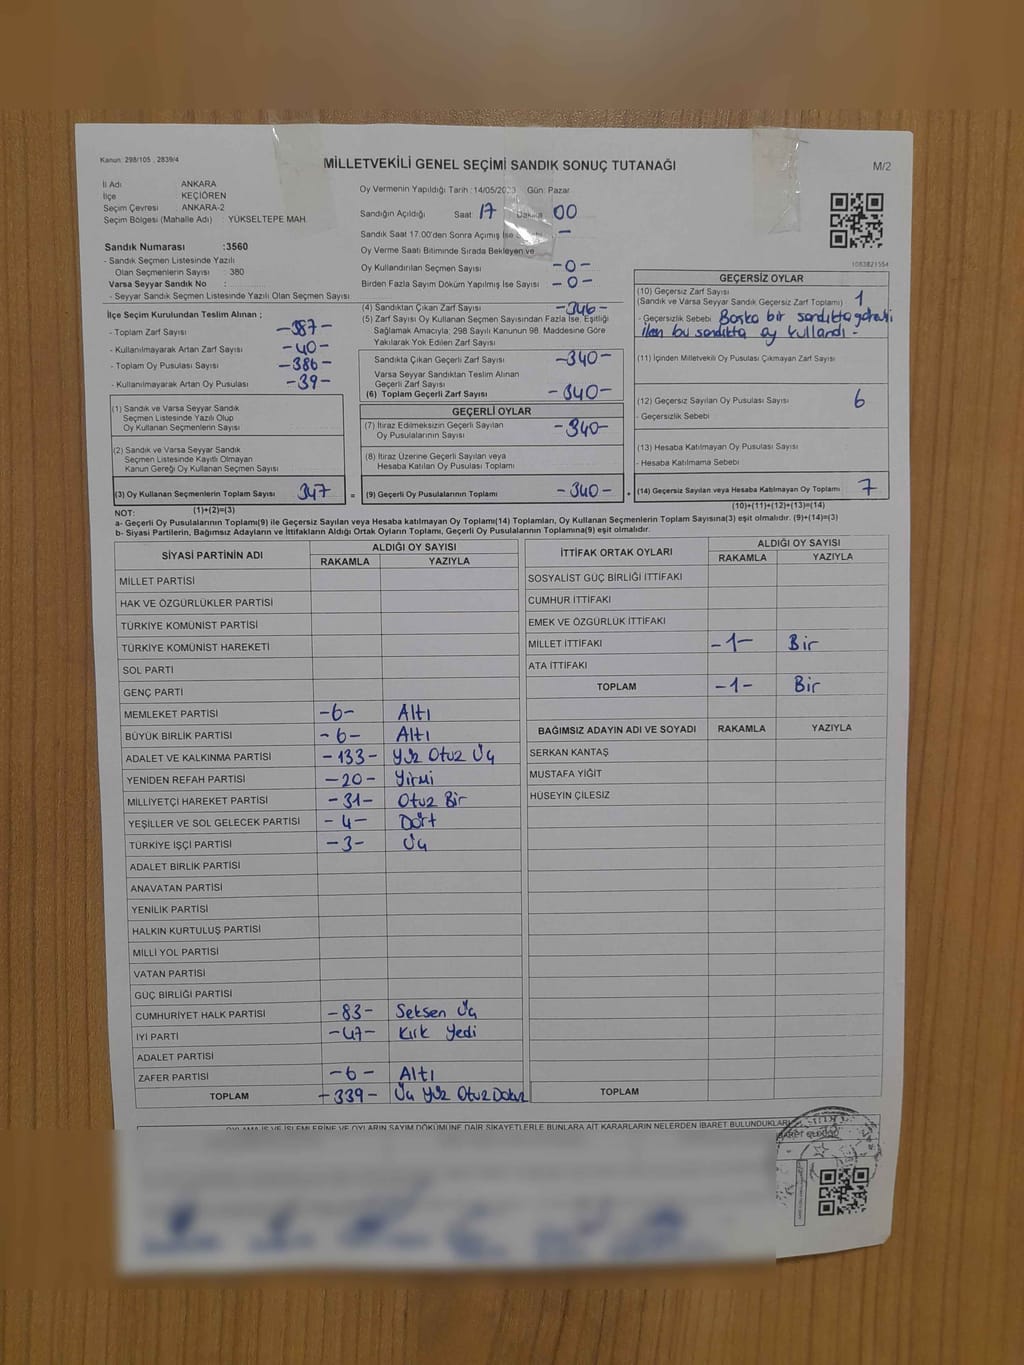 Kanun: 298/105 , 2839/4
MİLLETVEKİLİ GENEL SEÇİMİ SANDIK SONUÇ TUTANAĞI
M/2
İl Adı : ANKARA
İlçe : KEÇİÖREN
Seçim Çevresi : ANKARA-2
Seçim Bölgesi (Mahalle Adı) : YÜKSELTEPE MAH.
Sandık Numarası :3560
- Sandık Seçmen Listesinde Yazılı
Olan Seçmenlerin Sayısı : 380
Varsa Seyyar Sandık No :
- Seyyar Sandık Seçmen Listesinde Yazılı Olan Seçmen Sayısı
Oy Vermenin Yapıldığı Tarih :14/05/2023 Gün: Pazar
Sandığın Açıldığı Saat: 17 Dakika: 00
Sandık Saat 17.00'den Sonra Açılmış İse -
Oy Verme Saati Bitiminde Sırada Bekleyen ve
Oy Kullandırılan Seçmen Sayısı -0-
Birden Fazla Sayım Döküm Yapılmış İse Sayısı -0-
1083821554
İlçe Seçim Kurulundan Teslim Alınan ;
- Toplam Zarf Sayısı -387-
- Kullanılmayarak Artan Zarf Sayısı -40-
- Toplam Oy Pusulası Sayısı -386-
- Kullanılmayarak Artan Oy Pusulası -39-
(1) Sandık ve Varsa Seyyar Sandık
Seçmen Listesinde Yazılı Olup
Oy Kullanan Seçmenlerin Sayısı :
(2) Sandık ve Varsa Seyyar Sandık
Seçmen Listesinde Kayıtlı Olmayan
Kanun Gereği Oy Kullanan Seçmen Sayısı :
(3) Oy Kullanan Seçmenlerin Toplam Sayısı 347
(1)+(2)=(3)
(4) Sandıktan Çıkan Zarf Sayısı -346-
(5) Zarf Sayısı Oy Kullanan Seçmen Sayısından Fazla İse, Eşitliği
Sağlamak Amacıyla; 298 Sayılı Kanunun 98. Maddesine Göre
Yakılarak Yok Edilen Zarf Sayısı
Sandıkta Çıkan Geçerli Zarf Sayısı -340-
Varsa Seyyar Sandıktan Teslim Alınan
Geçerli Zarf Sayısı
(6) Toplam Geçerli Zarf Sayısı -340-
GEÇERLİ OYLAR
(7) İtiraz Edilmeksizin Geçerli Sayılan
Oy Pusulalarının Sayısı -340-
(8) İtiraz Üzerine Geçerli Sayılan veya
Hesaba Katılan Oy Pusulası Toplamı
= (9) Geçerli Oy Pusulalarının Toplamı -340-
GEÇERSİZ OYLAR
(10) Geçersiz Zarf Sayısı
(Sandık ve Varsa Seyyar Sandık Geçersiz Zarf Toplamı) 1
- Geçersizlik Sebebi Başka bir sandıkta görevli
iken bu sandıkta oy kullandı -
(11) İçinden Milletvekili Oy Pusulası Çıkmayan Zarf Sayısı
(12) Geçersiz Sayılan Oy Pusulası Sayısı 6
- Geçersizlik Sebebi
(13) Hesaba Katılmayan Oy Pusulası Sayısı
- Hesaba Katılmama Sebebi
(14) Geçersiz Sayılan veya Hesaba Katılmayan Oy Toplamı 7
(10)+(11)+(12)+(13)=(14)
NOT:
a- Geçerli Oy Pusulalarının Toplamı(9) ile Geçersiz Sayılan veya Hesaba katılmayan Oy Toplamı(14) Toplamları, Oy Kullanan Seçmenlerin Toplam Sayısına(3) eşit olmalıdır. (9)+(14)=(3)
b- Siyasi Partilerin, Bağımsız Adayların ve İttifakların Aldığı Oyların Toplamı, Geçerli Oy Pusulalarının Toplamına(9) eşit olmalıdır.
SİYASİ PARTİNİN ADI ALDIĞI OY SAYISI
RAKAMLA YAZIYLA
MİLLET PARTİSİ
HAK VE ÖZGÜRLÜKLER PARTİSİ
TÜRKİYE KOMÜNİST PARTİSİ
TÜRKİYE KOMÜNİST HAREKETİ
SOL PARTİ
GENÇ PARTİ
MEMLEKET PARTİSİ -6- Altı
BÜYÜK BİRLİK PARTİSİ -6- Altı
ADALET VE KALKINMA PARTİSİ -133- Yüz Otuz Üç
YENİDEN REFAH PARTİSİ -20- Yirmi
MİLLİYETÇİ HAREKET PARTİSİ -31- Otuz Bir
YEŞİLLER VE SOL GELECEK PARTİSİ -4- Dört
TÜRKİYE İŞÇİ PARTİSİ -3- Üç
ADALET BİRLİK PARTİSİ
ANAVATAN PARTİSİ
YENİLİK PARTİSİ
HALKIN KURTULUŞ PARTİSİ
MİLLİ YOL PARTİSİ
VATAN PARTİSİ
GÜÇ BİRLİĞİ PARTİSİ
CUMHURİYET HALK PARTİSİ -83- Seksen Üç
İYİ PARTİ -47- Kırk Yedi
ADALET PARTİSİ
ZAFER PARTİSİ -6- Altı
TOPLAM -339- Üç Yüz Otuz Dokuz
İTTİFAK ORTAK OYLARI ALDIĞI OY SAYISI
RAKAMLA YAZIYLA
SOSYALİST GÜÇ BİRLİĞİ İTTİFAKI
CUMHUR İTTİFAKI
EMEK VE ÖZGÜRLÜK İTTİFAKI
MİLLET İTTİFAKI -1- Bir
ATA İTTİFAKI
TOPLAM -1- Bir
BAĞIMSIZ ADAYIN ADI VE SOYADI RAKAMLA YAZIYLA
SERKAN KANTAŞ
MUSTAFA YİĞİT
HÜSEYİN ÇİLESİZ
TOPLAM
OYLAMA İŞ VE İŞLEMLERİNE VE OYLARIN SAYIM DÖKÜMÜNE DAİR ŞİKAYETLERLE BUNLARA AİT KARARLARIN NELERDEN İBARET BULUNDUKLARI